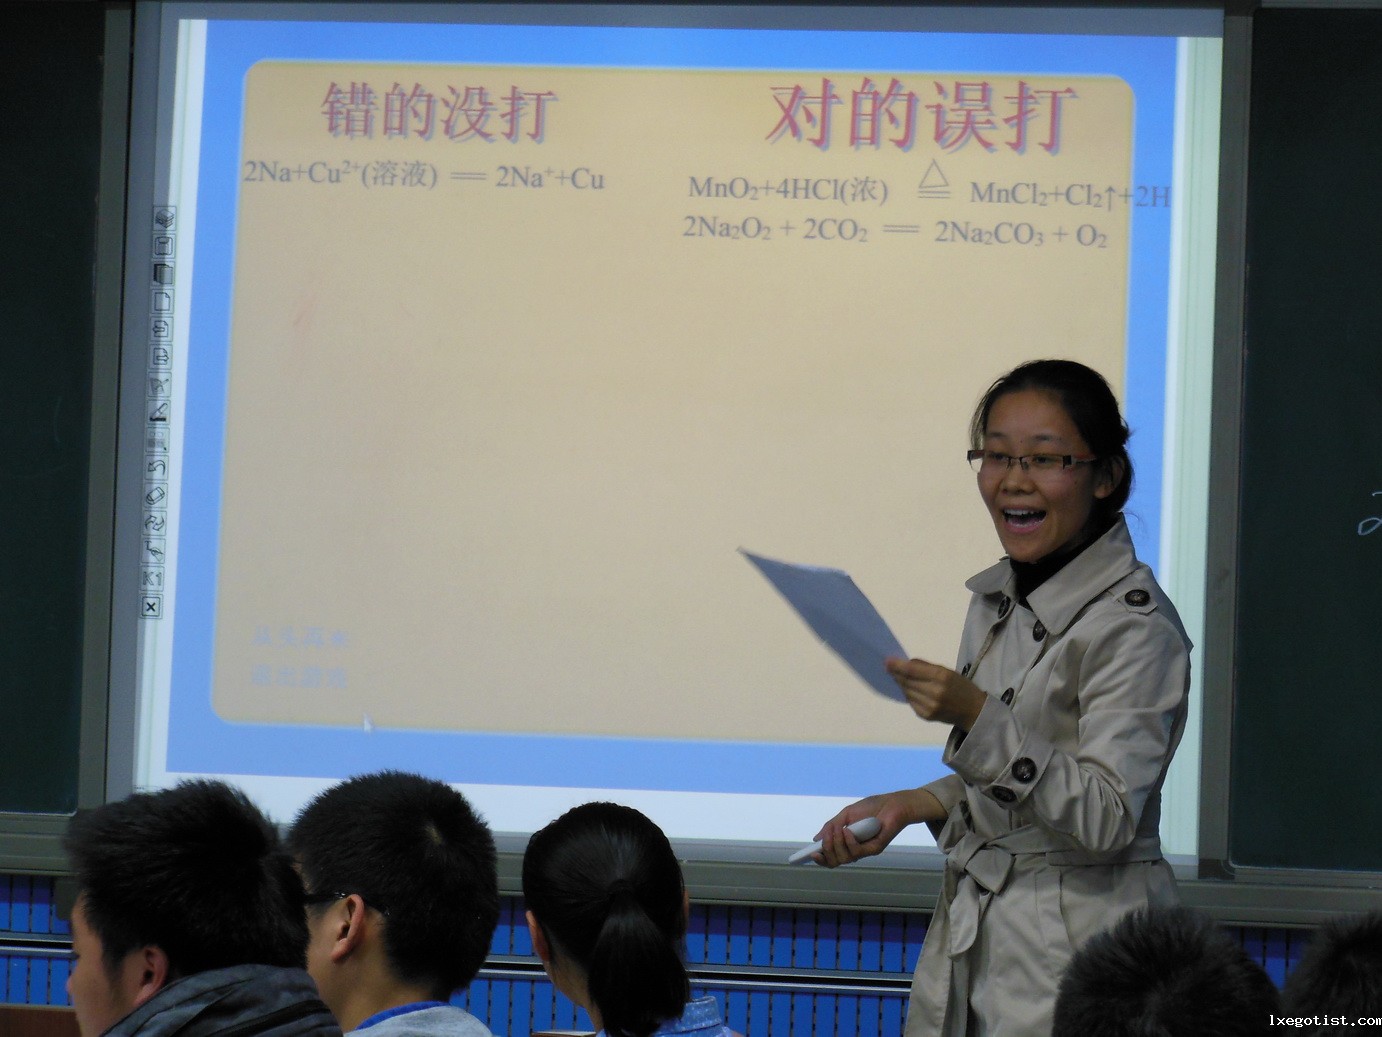 错的没打
2Na+Cu²⁺(溶液) == 2Na⁺+Cu
对的误打
MnO₂+4HCl(浓) ≜ MnCl₂+Cl₂↑+2H
2Na₂O₂ + 2CO₂ == 2Na₂CO₃ + O₂
K1
lxegotist.com